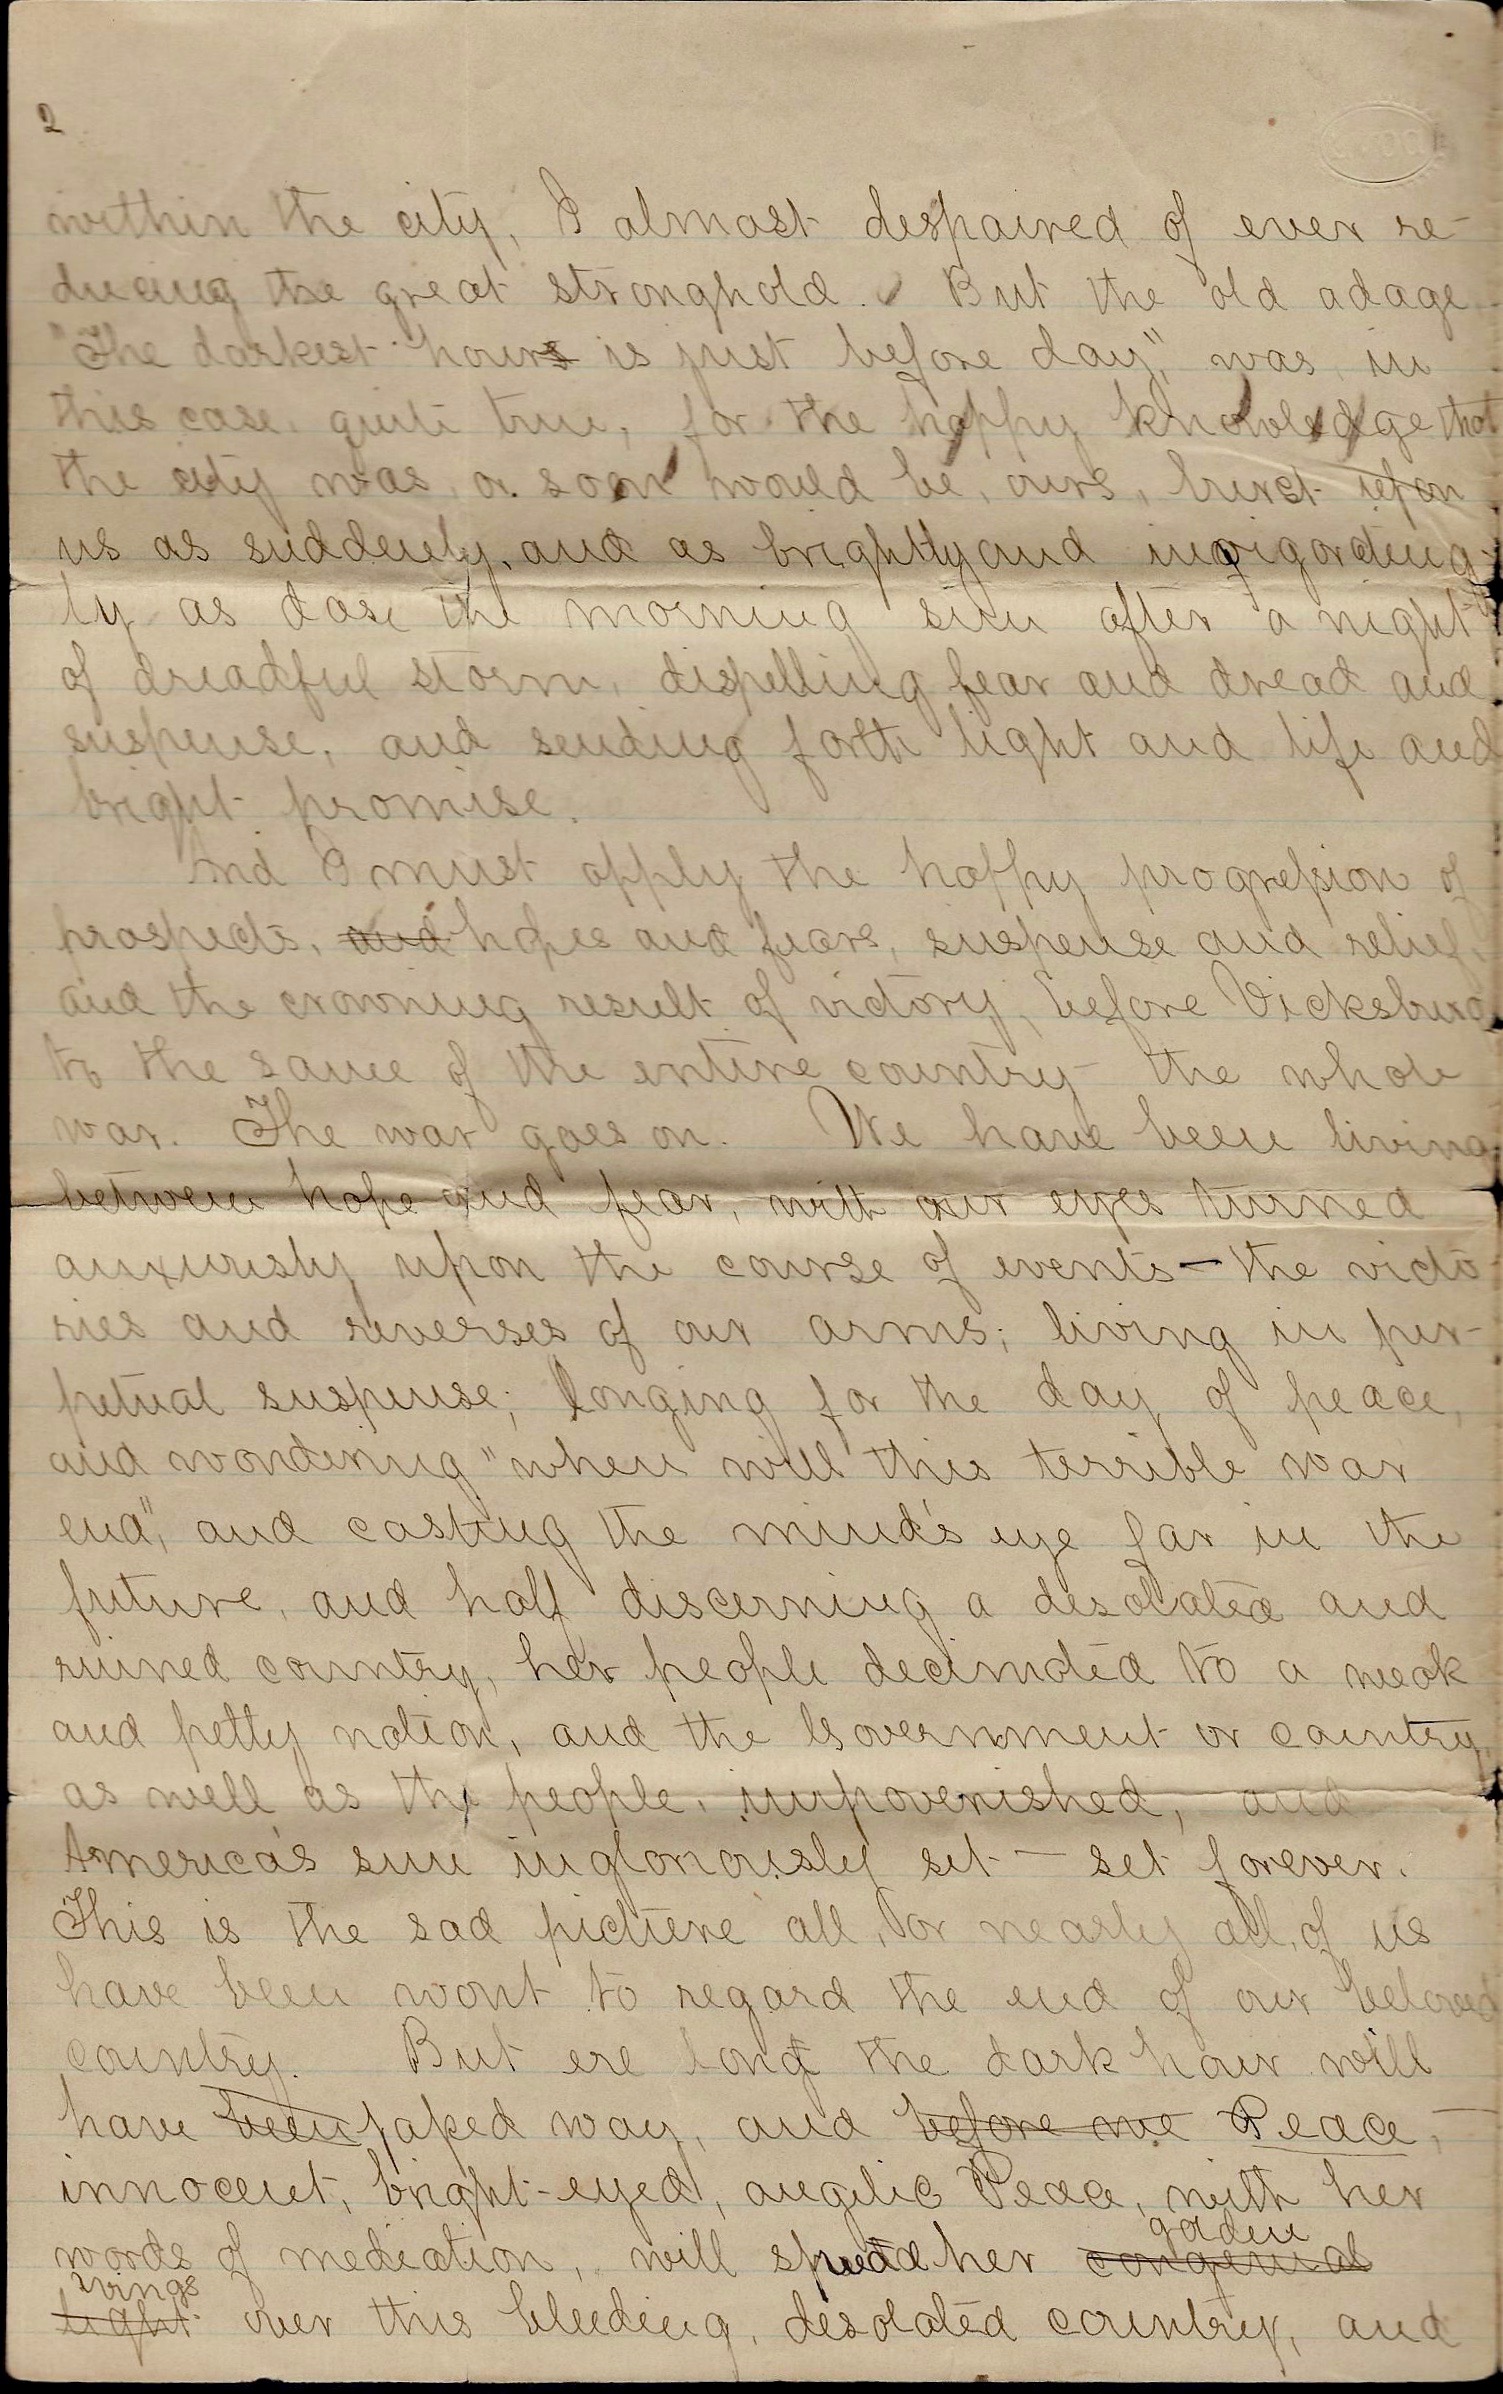 2
within the city, I almost despaired of ever re-
ducing the great stronghold. But the old adage
"The darkest hour is just before day", was, in
this case, quite true, for the happy knowledge that
the city was, or soon would be, ours, burst upon
us as suddenly, and as brightly and invigorating-
ly as dose the morning sun after a night
of dreadful storm, dispelling fear and dread and
suspense, and sending forth light and life and
bright promise.
And I must apply the happy progression of
prospects, and hopes and fears, suspense and relief,
and the crowning result of victory, before Vicksburg
to the sauce of the entire country - the whole
war. The war goes on. We have been living
between hope and fear, with our eyes turned
anxiously upon the course of events — the victo-
ries and reverses of our arms; living in per-
petual suspense; longing for the day of peace,
and wondering "when will this terrible war
end", and casting the mind's eye far in the
future, and half discerning a desolated and
ruined country, her people decimated to a weak
and petty nation, and the Government or country,
as well as the people, impoverished, and
America's sun ingloriously set — set forever.
This is the sad picture all, or nearly all, of us
have been wont to regard the end of our beloved
country. But ere long the dark hour will
have been passed way, and before we Peace, —
innocent, bright-eyed, angelic Peace, with her
golden
words of mediation, will spread her congenial
wings
light over this bleeding, desolated country, and